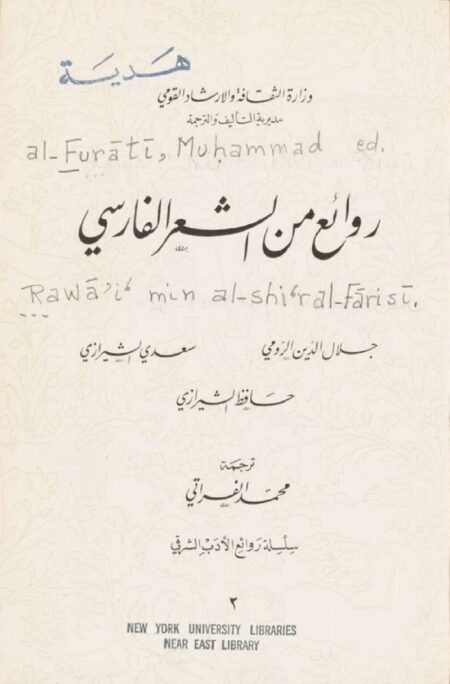 هدية
وزارة الثقافة والارشاد القومي
مديرية التأليف والترجمة
al-Furātī, Muḥammad ed.
روائع من الشعر الفارسي
Rawā'i' min al-shi'r al-Fārisī.
جلال الدين الرومي سعدي الشيرازي
حافظ الشيرازي
ترجمة
محمد الفراتي
سلسلة روائع الأدب الشرقي
٢
NEW YORK UNIVERSITY LIBRARIES
NEAR EAST LIBRARY